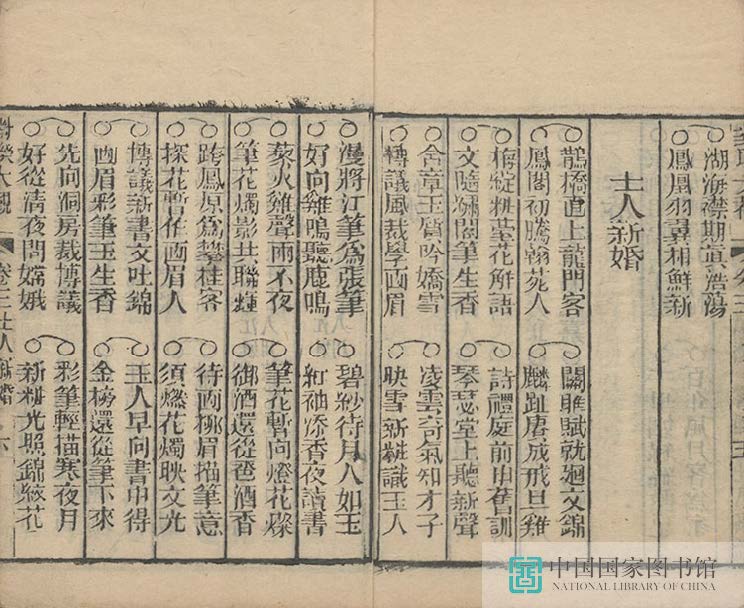 湖海襟期眞浩蕩
鳳凰羽翼相鮮新
士人新婚
鵲橋直上龍門客 關雎賦就廻文錦
鳳閣初騰翰苑人 麟趾賡成戒旦雞
梅綻粧臺花解語 詩禮庭前申舊訓
文隨綉閣筆生香 琴瑟堂上聽新聲
含章玉質吟嬌雪 凌雲奇氣知才子
博議風裁學画眉 映雪新粧識玉人
漫將江筆爲張筆 碧紗待月人如玉
好向雞鳴聽鹿鳴 紅袖添香夜讀書
藜火雞聲雨不夜 筆花暫向燈花燦
筆花燭影共聯輝 御酒還從巹酒香
跨鳳原爲攀桂客 待画柳眉描筆意
探花暫作画眉人 須燃花燭映文光
博議新書文吐錦 玉人早向書中得
画眉彩筆玉生香 金榜還從筆下來
先向洞房裁博議 彩筆輕描寒夜月
好從清夜問嫦娥 新粧光照錦綾花
大觀 卷三 士人新婚 六
中国国家图书馆
NATIONAL LIBRARY OF CHINA